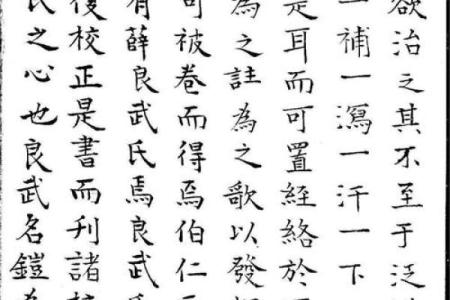 欲治之其不至于泛
一補一瀉一汗一下
是耳而可置経絡於
為之註為之歌以發
可被卷而得焉伯仁
有薛良武氏焉良武氏
後校正是書而刊諸
氏之心也良武名鎧